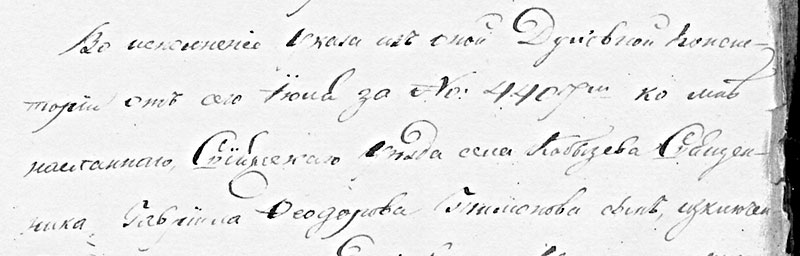 Во исполненіе Указа изъ оной Духовной Консис-
торіи отъ сего Іюля за No: 4407м ко мнѣ
посланнаго, уѣзда села Кобызева Священ-
ника Гавріила Ѳеодорова сынъ, изключен